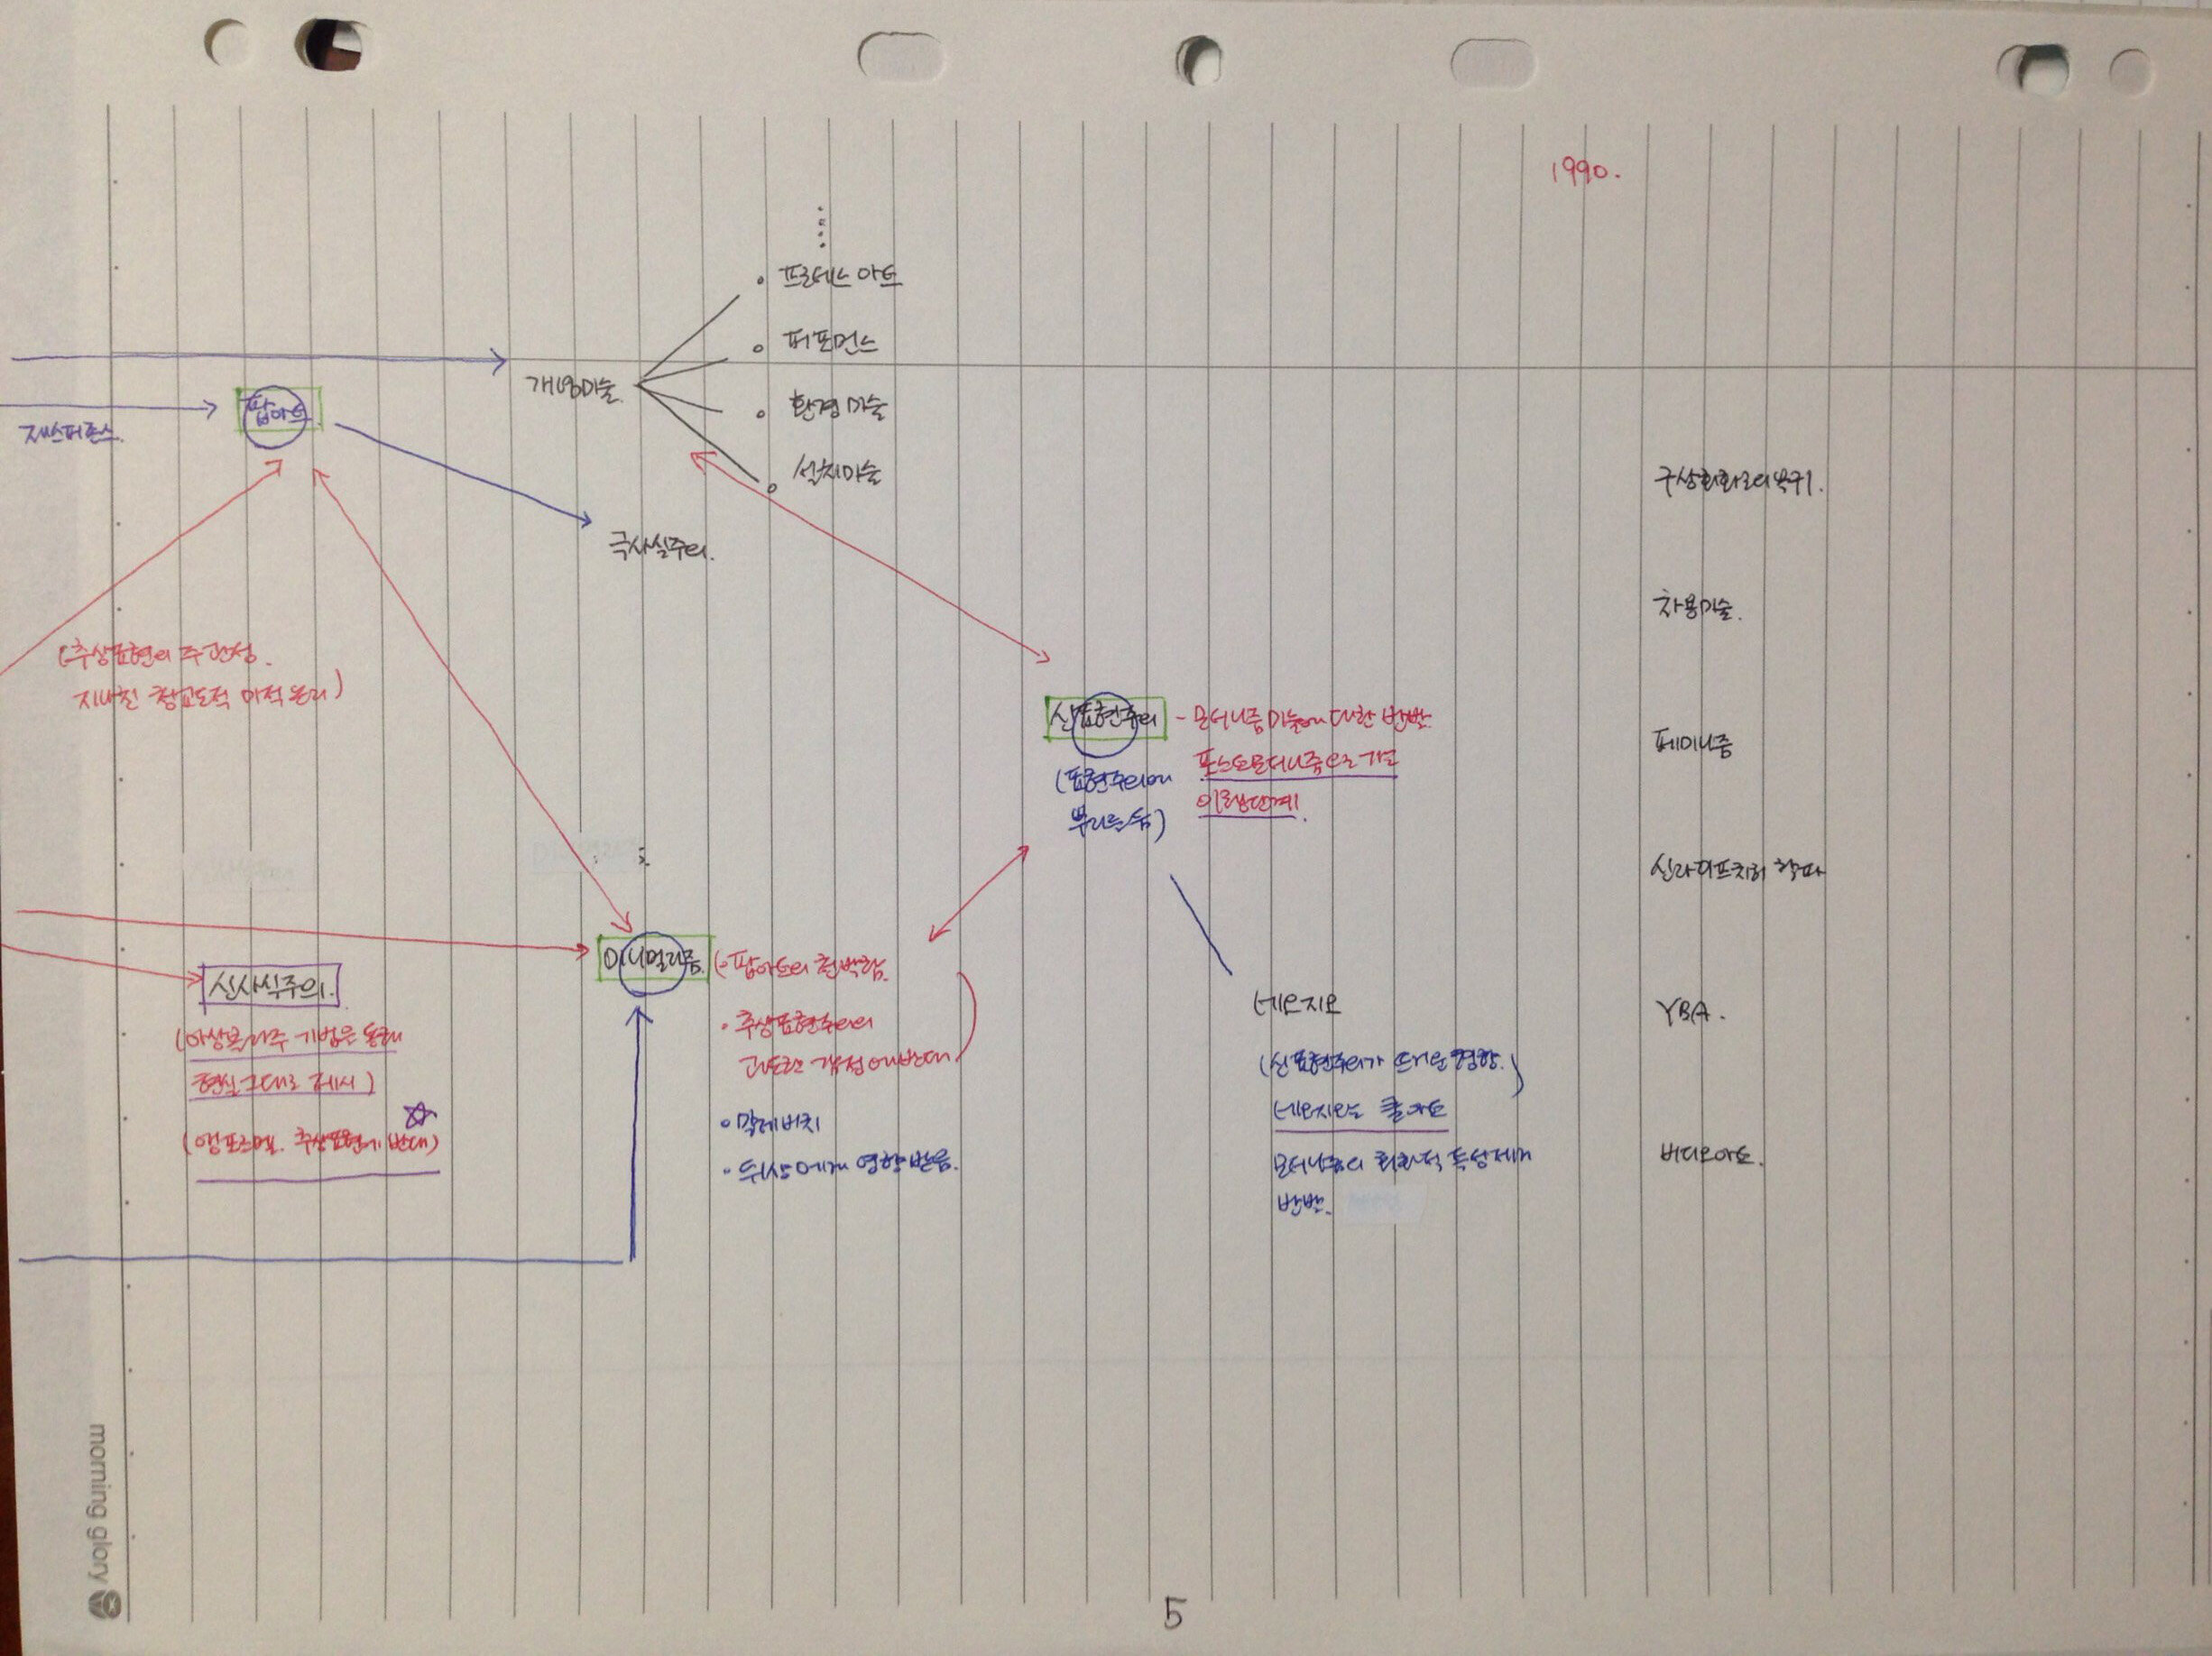 1990.
프로세스 아트
퍼포먼스
개념미술.
환경 미술
설치미술
팝아트
재스퍼존스.
극사실주의.
구상회화로의 복귀.
차용미술.
(추상표현의 주관성.
지나친 청교도적 미적 논리)
신표현주의 - 모더니즘 미술에 대한 반발.
포스트모더니즘으로 가는
이행단계.
(표현주의에
뿌리를 둠)
페미니즘
신라이프치히 학파
미니멀리즘. (·팝아트의 천박함.
·추상표현주의의
고도로 감정에 반대)
·말레비치
·뒤샹에게 영향 받음.
신사실주의.
(아상블라주 기법을 통해
현실 그대로 제시)
(앵포르멜. 추상표현에 반대)
네오지오
(신표현주의가 뜨거운 경향.)
네오지오는 쿨아트
모더니즘의 회화적 특성에
반발.
YBA.
비디오아트.
5
morning glory